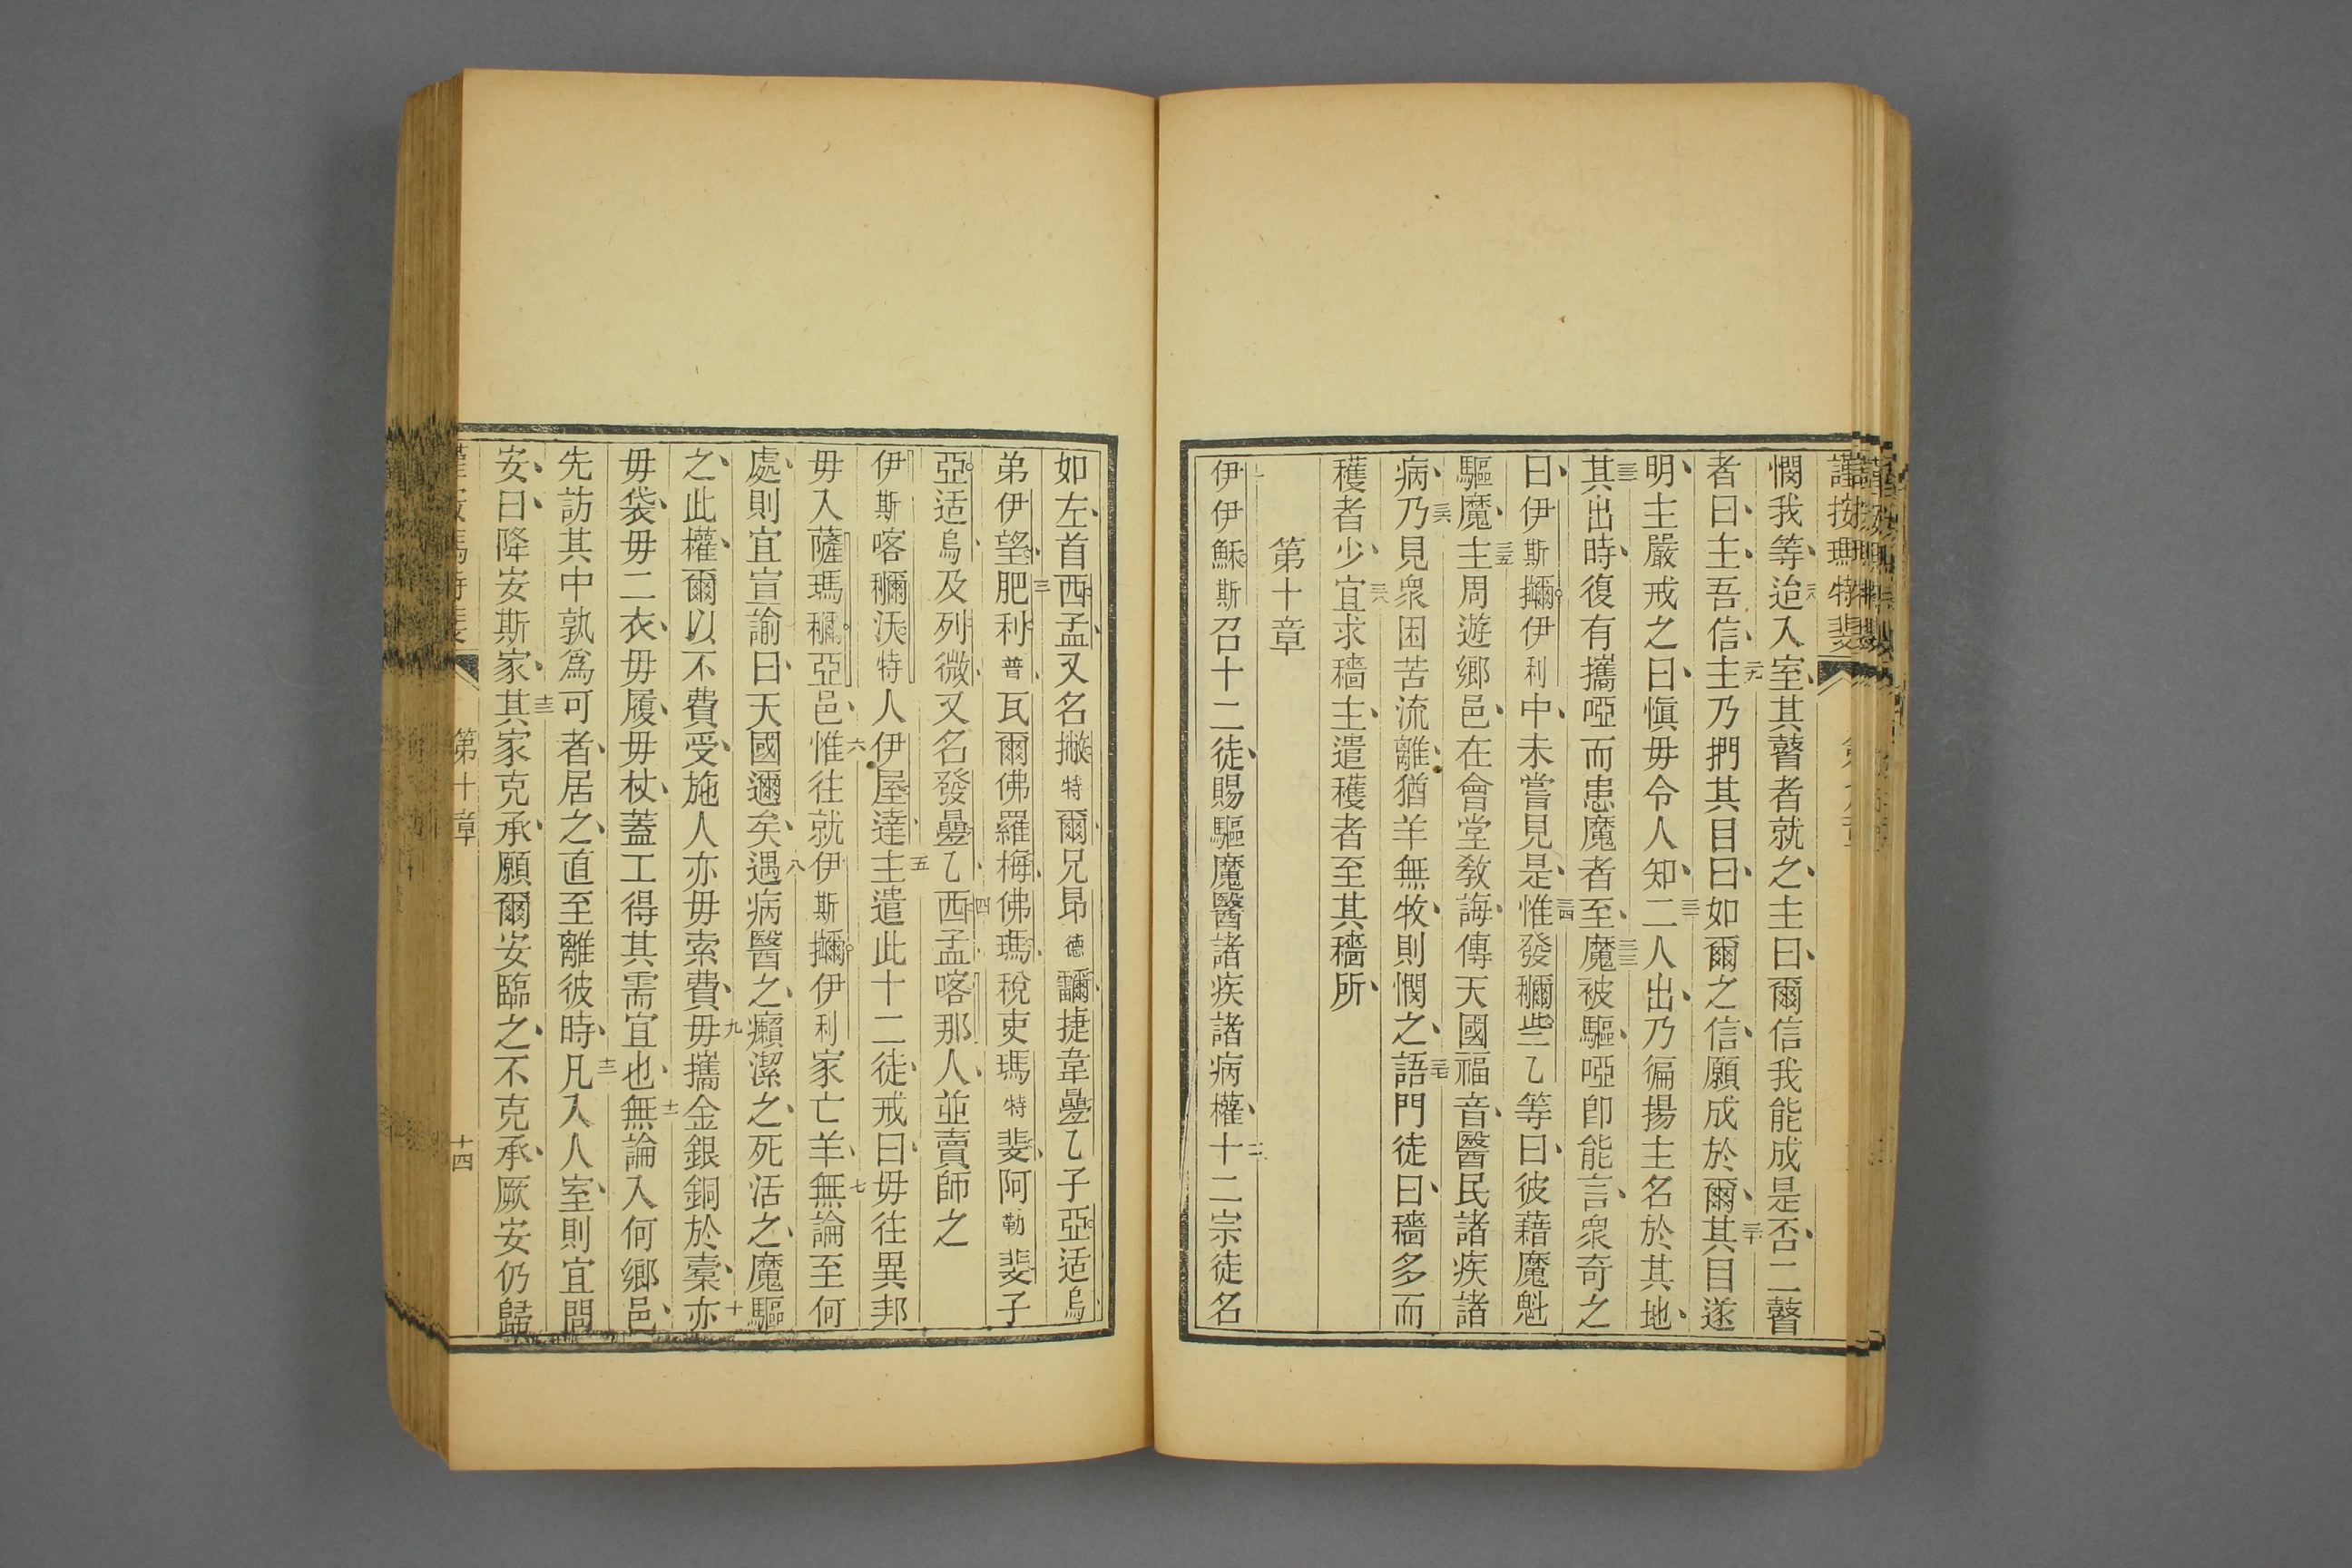 謹按瑪特斐
憫我等、迨入室、其瞽者就之、主曰、爾信我能成是否、二瞽
者曰、主、吾信、主乃捫其目曰、如爾之信、願成於爾、其目遂
明、主嚴戒之曰、愼毋令人知、二人出、乃徧揚主名於其地、
其出時、復有攜啞而患魔者至、魔被驅、啞卽能言、衆奇之
曰、伊斯
伊利中、未嘗見是、惟發
乙等曰、彼藉魔魁
驅魔、主周遊鄉邑、在會堂敎誨、傳天國福音、醫民諸疾諸
病、乃見衆困苦流離、猶羊無牧、則憫之、語門徒曰、穡多而
穫者少、宜求穡主、遣穫者至其穡所、
第十章
伊伊穌斯召十二徒、賜驅魔醫諸疾諸病權、十二宗徒名
如左、首西孟、又名撇特爾、兄昂德
捷韋
乙子亞适烏、
弟伊望、肥利普、瓦爾佛羅梅、佛瑪、稅吏瑪特斐、阿勒斐子
亞适烏、及列微、又名發
乙、西孟喀那人、並賣師之
伊斯喀
沃特人伊屋達、主遣此十二徒、戒曰、毋往異邦
毋入薩瑪
亞邑、惟往就伊斯
伊利家亡羊、無論至何
處、則宜宣諭曰、天國邇矣、遇病醫之、癩潔之、死活之、魔驅
之、此權、爾以不費受、施人亦毋索費、毋攜金銀銅於橐、亦
毋袋、毋二衣、毋履、毋杖、蓋工得其需宜也、無論入何鄉邑、
先訪其中孰爲可者、居之、直至離彼時、凡入人室、則宜問
安、曰、降安斯家、其家克承、願爾安臨之、不克承、厥安仍歸
第十章
十四